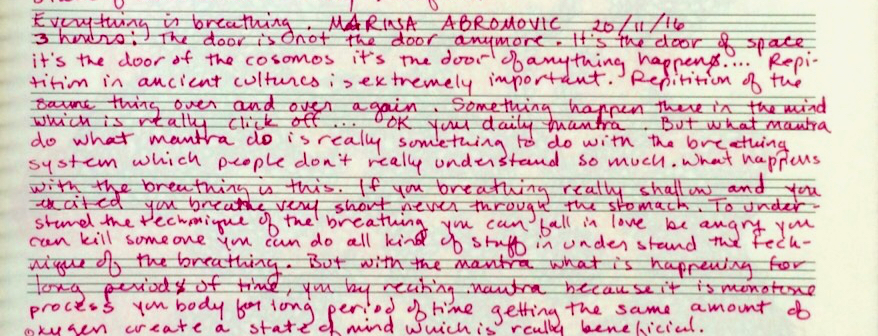 Everything is breathing. MARINA ABROMOVIC 20/11/16
3 hours: The door is not the door anymore. It's the door of space
it's the door of the cosomos it's the door of anything happens.... Repi-
tition in ancient cultures is extremely important. Repitition of the
same thing over and over again. Something happen there in the mind
which is really click off.... OK you daily mantra. But what mantra
do what mantra do is really something to do with the breathing
system which people don't really understand so much. What happens
with the breathing is this. If you breathing really shallow and you
excited you breathe very short never through the stomach. To under-
stand the technique of the breathing you can fall in love be angry you
can kill someone you can do all kind of stuff in under stand the tech-
nique of the breathing. But with the mantra what is happening for
long periods of time, you by reciting mantra because it is monotone
process you body for long period of time getting the same amount of
oxygen create a state of mind which is really beneficial.